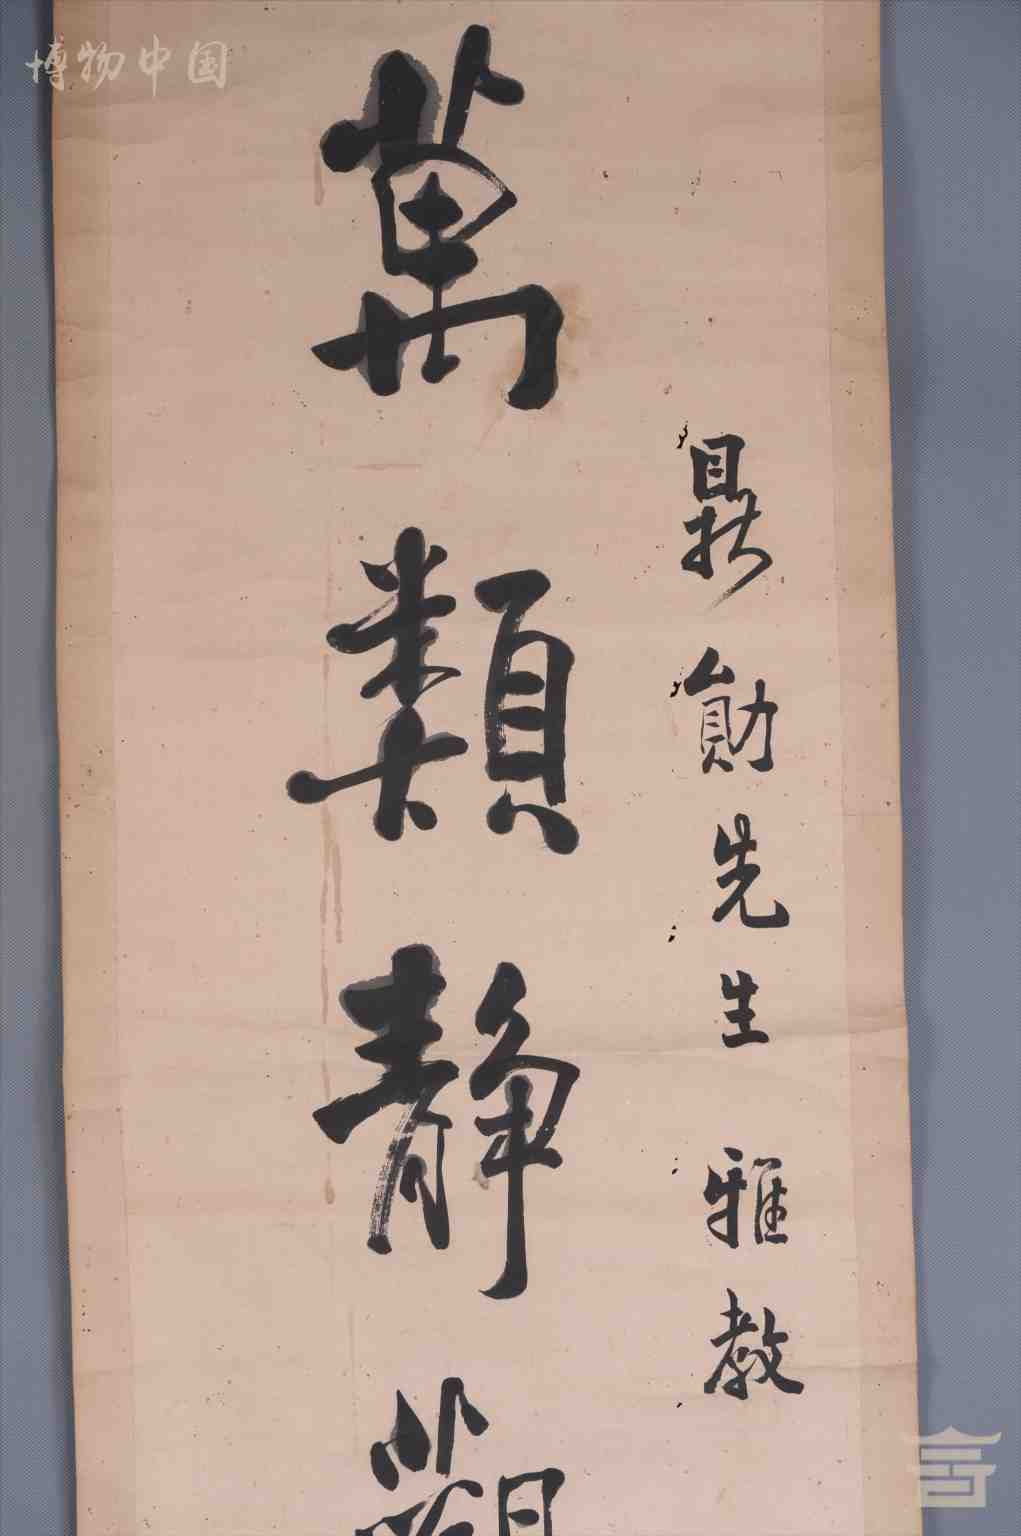 博物中国
鼎勛先生雅教
萬類靜觀